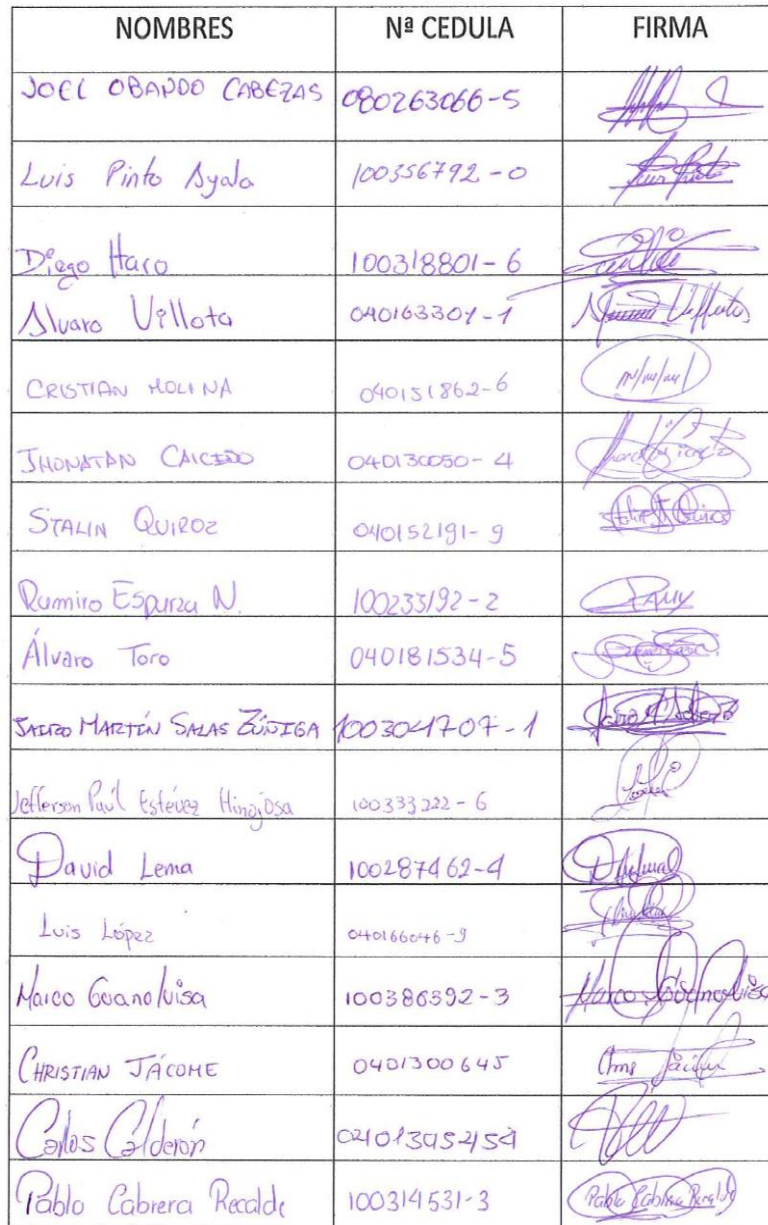 NOMBRES Nª CEDULA FIRMA
JOEL OBANDO CABEZAS 080263066-5
Luis Pinto Ayala 100356792-0 Luis Pinto
Diego Haro 100318801-6
Alvaro Villota 040163301-1 Villota
CRISTIAN MOLINA 040151862-6
JHONATAN CAICEDO 040130050-4
STALIN QUIROZ 040152191-9 Stalin Quiroz
Ramiro Esparza N. 100235192-2
Álvaro Toro 040181534-5
JAIRO MARTÍN SALAS ZÚÑIGA 100304707-1
Jefferson Paúl Estévez Hinojosa 100333222-6
David Lema 100287462-4
Luis López 040166046-9
Marco Guanoluisa 100386392-3 Marco Guanoluisa
CHRISTIAN JÁCOME 0401300645
Carlos Calderón
Pablo Cabrera Recalde 100314531-3 Pablo Cabrera Recalde